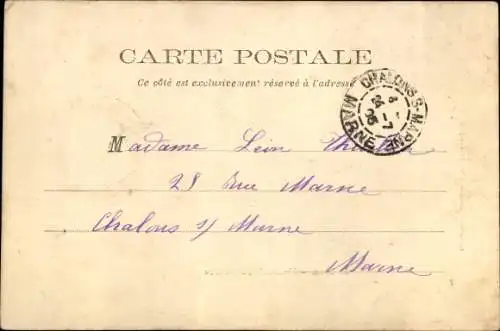 CARTE POSTALE
Ce côté est exclusivement réservé à l'adresse
CHALONS-S-MARNE
MARNE
Madame Léon
28 Rue Marne
Chalons s/ Marne
Marne